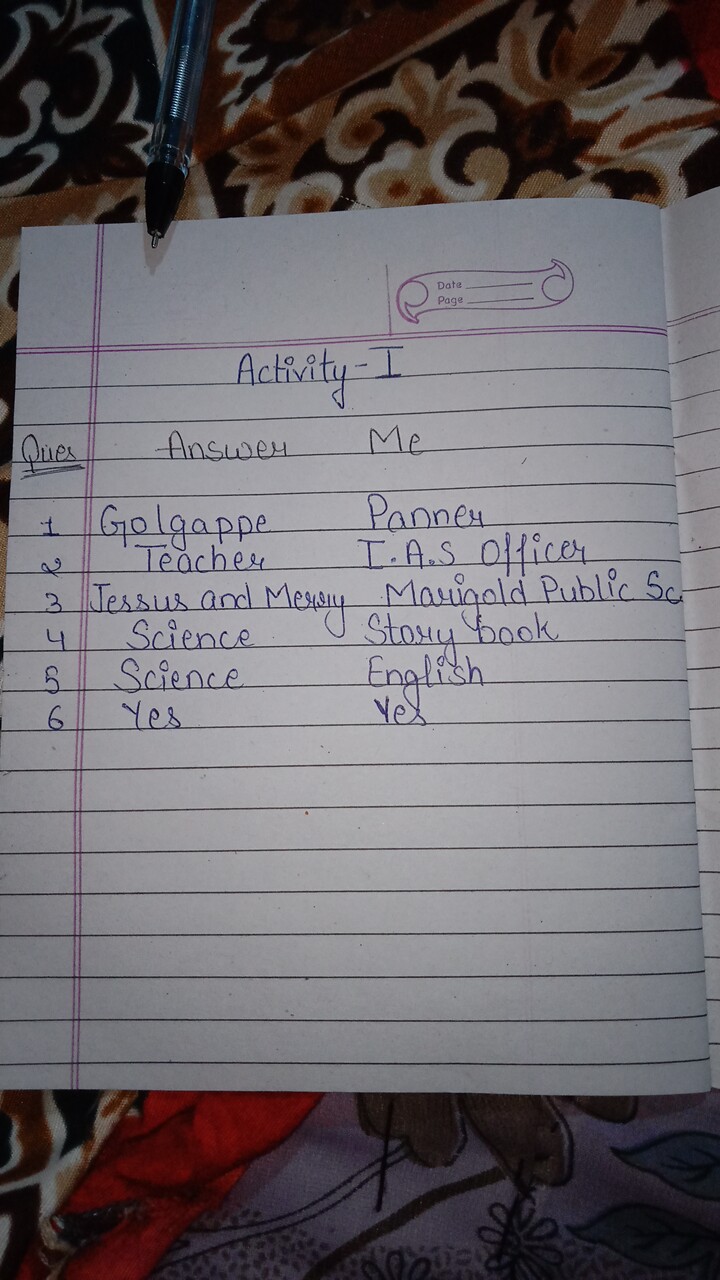 Date
Page
Activity-I
Ques Answer Me
1 Golgappe Panner
2 Teacher I.A.S Officer
3 Jessus and Merry Marigold Public Sc
4 Science Story book
5 Science English
6 Yes Yes